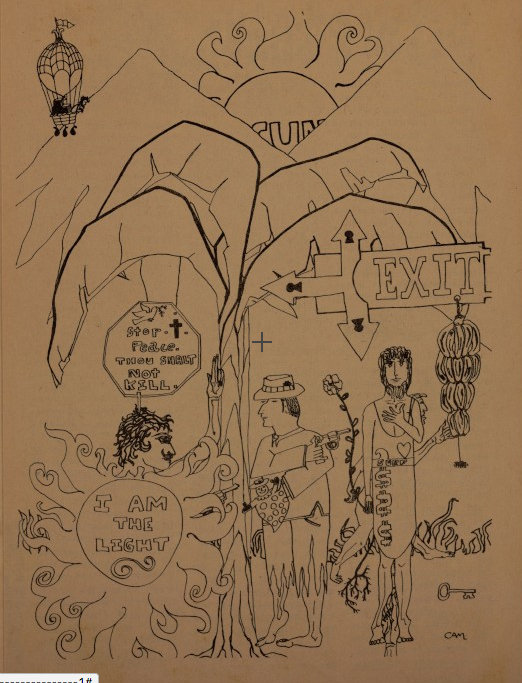 SUN
EXIT
Stop.
Peace.
THOU SHALT
NOT
KILL.
I AM
THE
LIGHT
CAM
1#